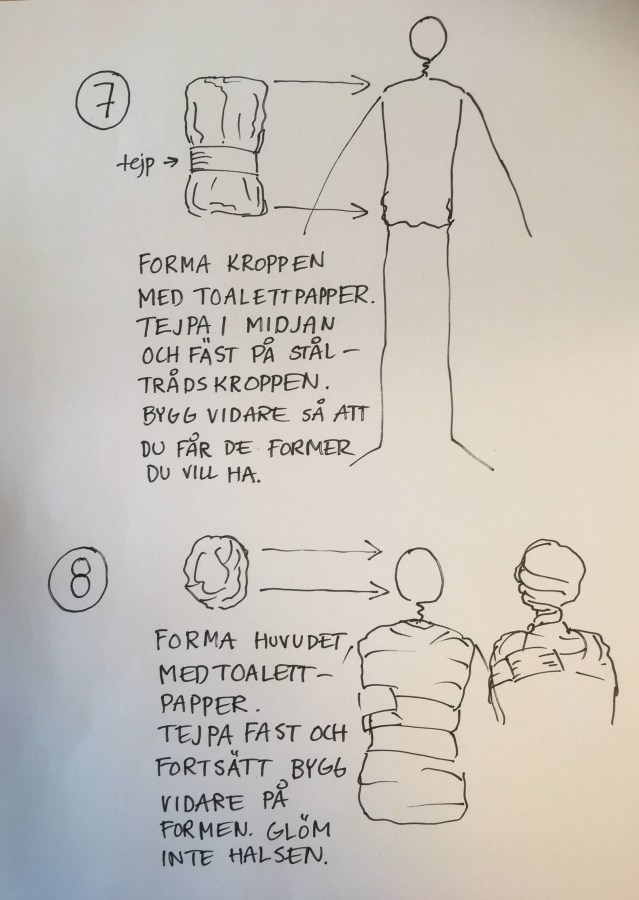 7
tejp →
FORMA KROPPEN
MED TOALETTPAPPER.
TEJPA I MIDJAN
OCH FÄST PÅ STÅL-
TRÅDSKROPPEN.
BYGG VIDARE SÅ ATT
DU FÅR DE FORMER
DU VILL HA.
8
FORMA HUVUDET
MED TOALETT-
PAPPER.
TEJPA FAST OCH
FORTSÄTT BYGG
VIDARE PÅ
FORMEN. GLÖM
INTE HALSEN.